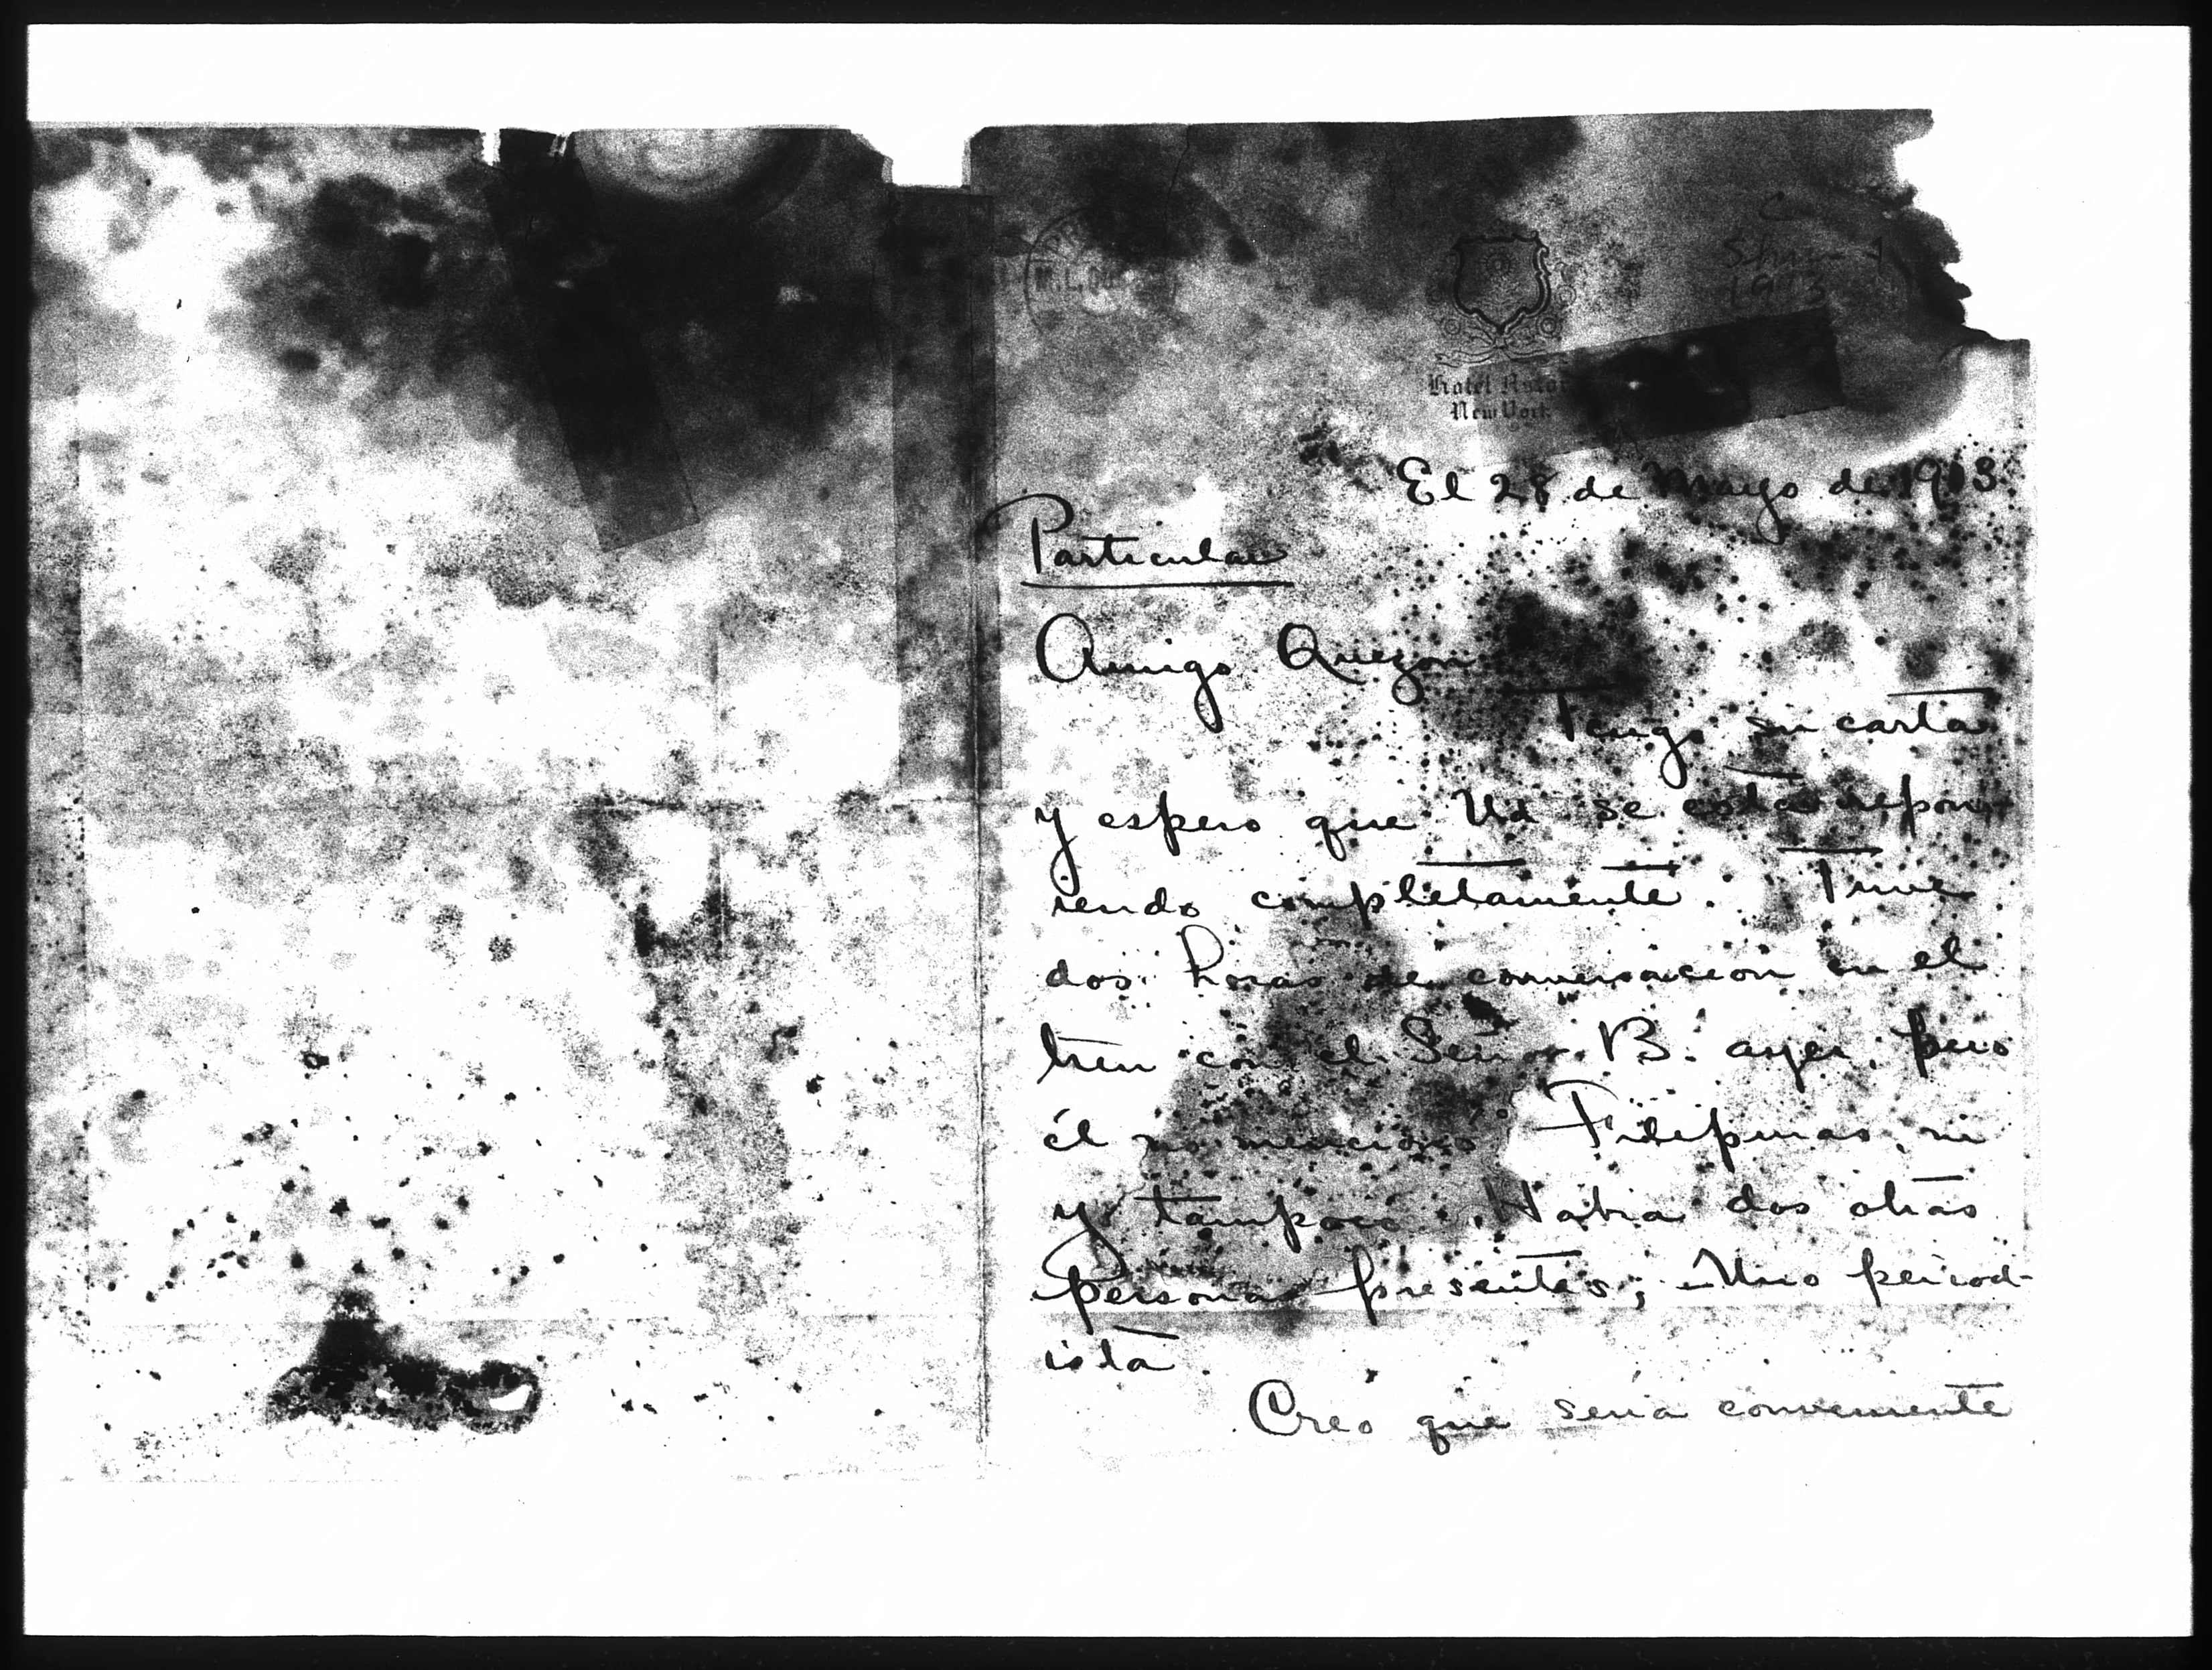 M. L. QU
1913
Hotel Astor
New York
El 28 de Mayo de 1913
Particular
Amigo Quezon
Tengo su carta
y espero que Ud se está repon-
iendo completamente. Tuve
dos horas de conversacion en el
tren con el Señor B. ayer, pero
él no mencionó Filipinas, ni
yo tampoco. Habia dos otras
personas presentes; uno period-
ista
Creo que seria conveniente